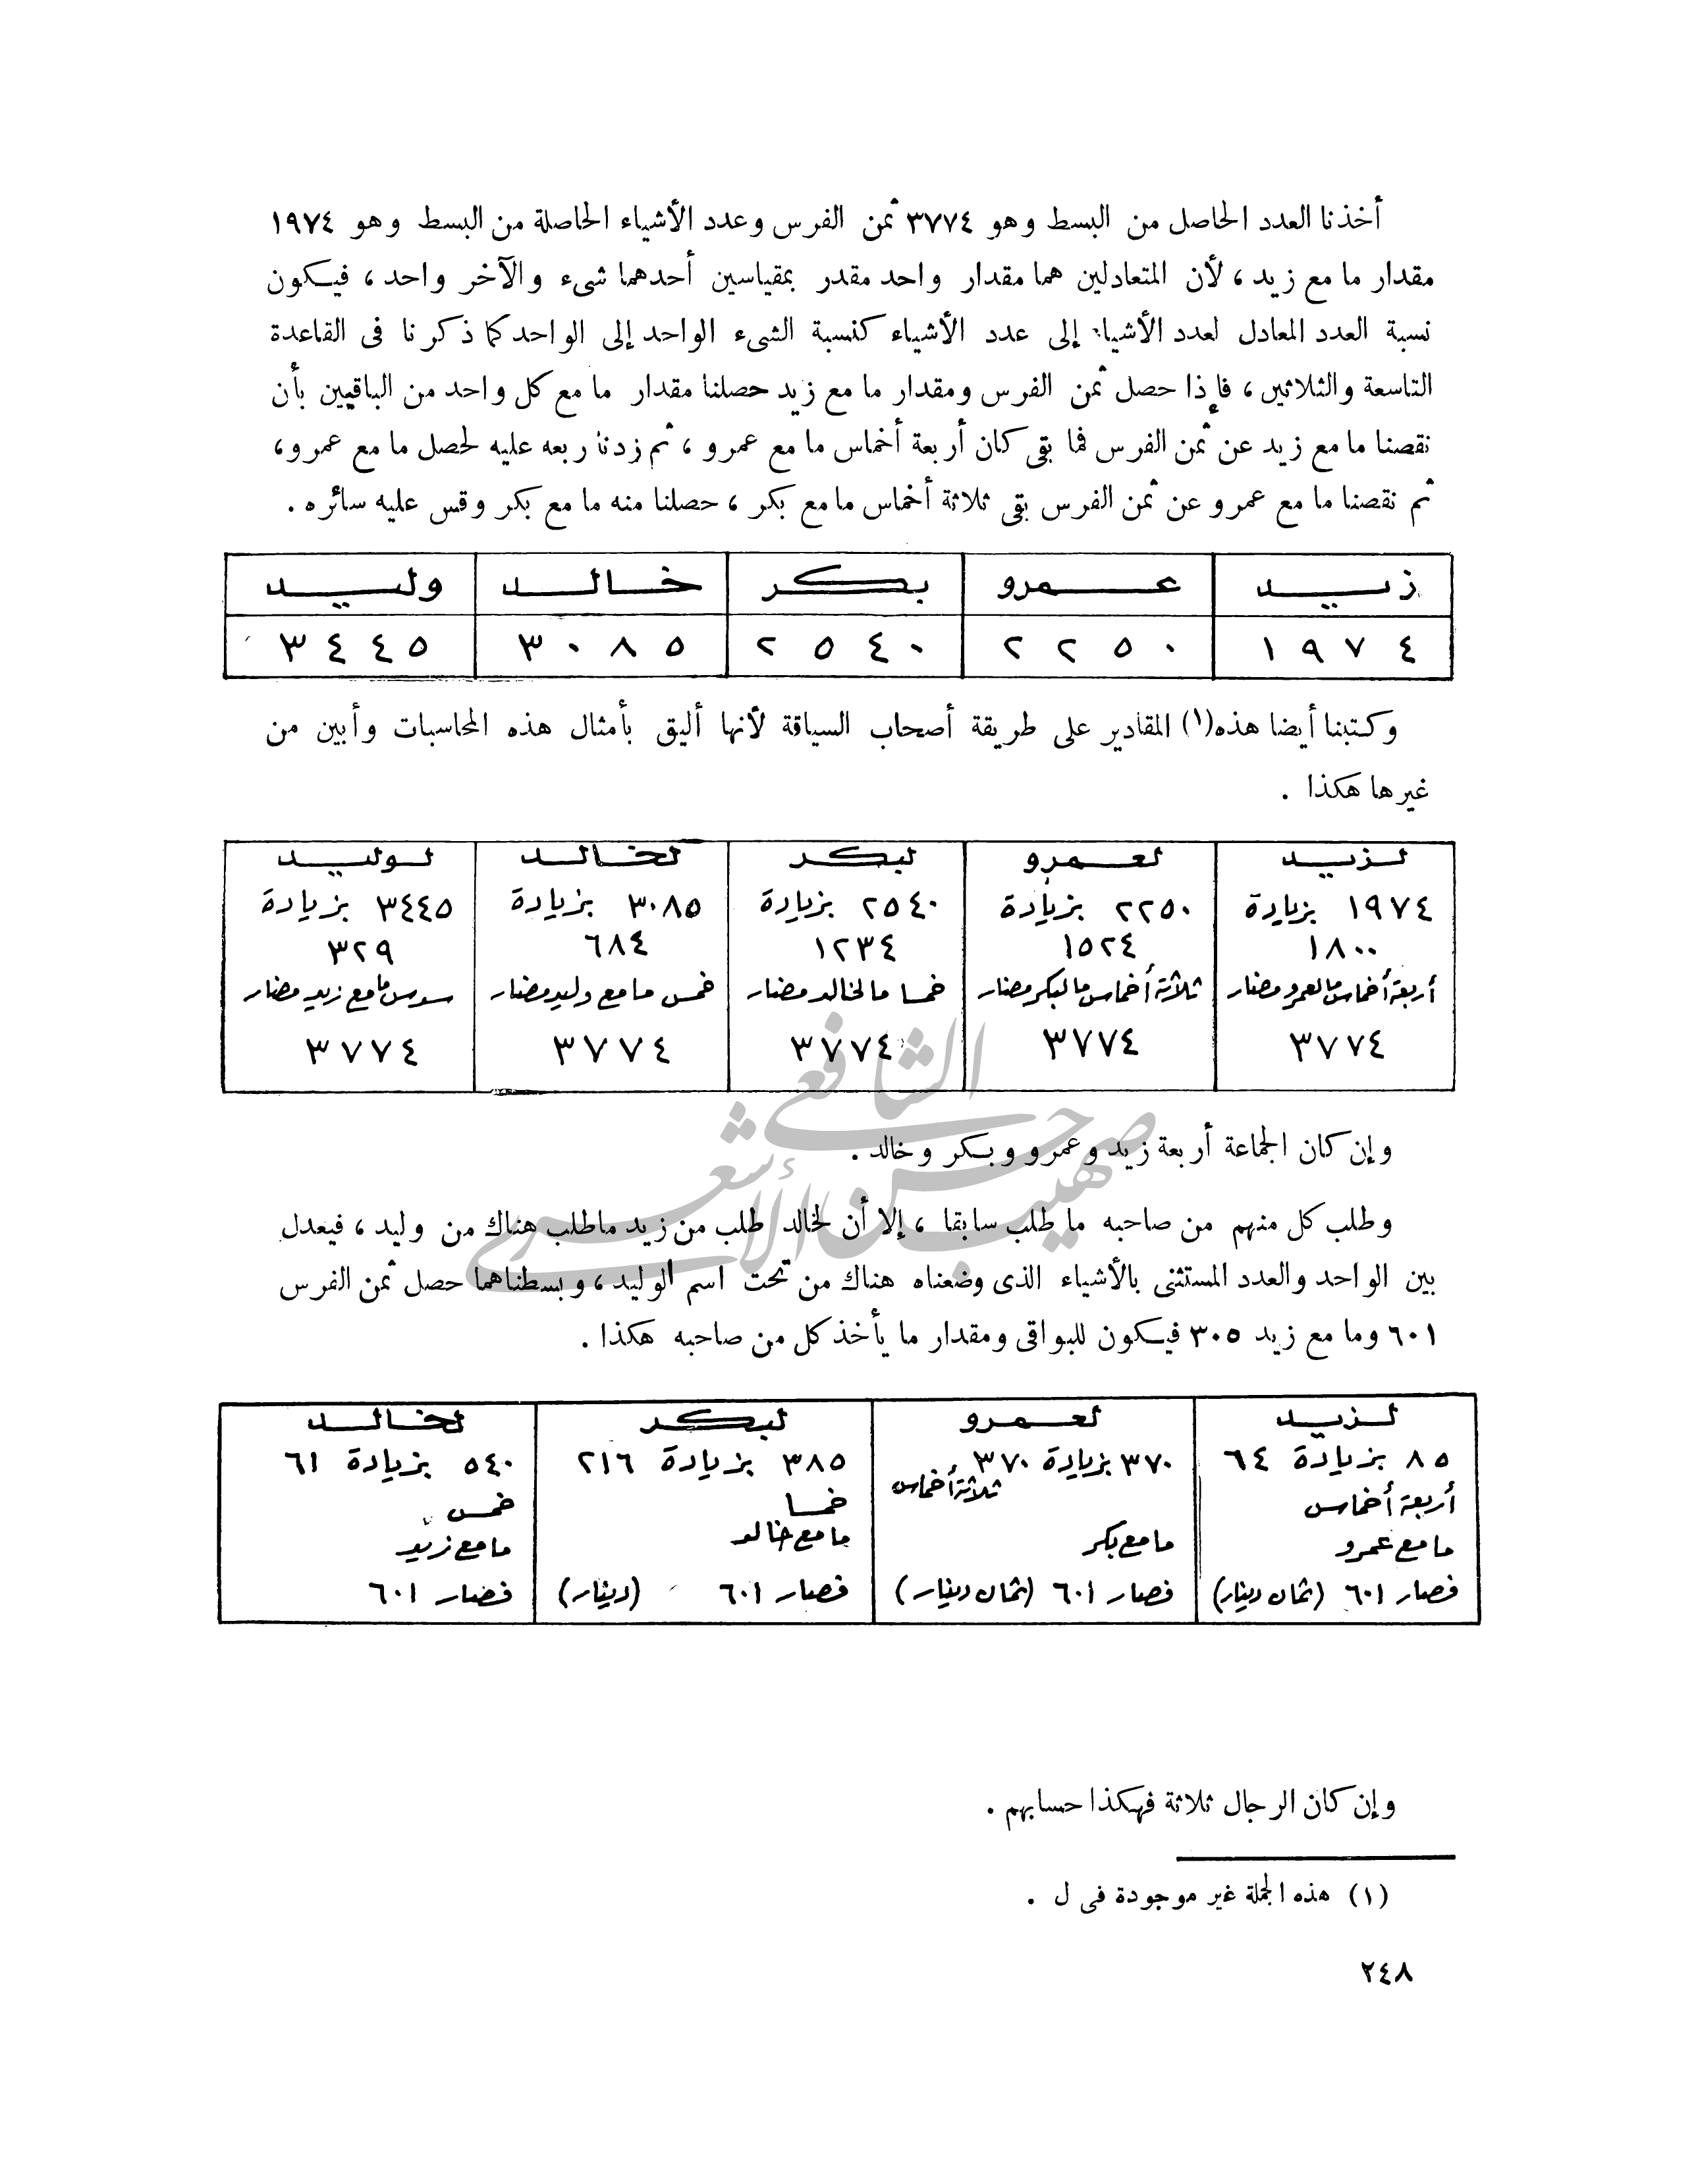 أخذنا العدد الحاصل من البسط وهو ٣٧٧٤ ثمن الفرس وعدد الأشياء الحاصلة من البسط وهو ١٩٧٤
مقدار ما مع زيد ، لأن المتعادلين هما مقدار واحد مقدر بمقياسين أحدهما شىء والآخر واحد ، فيكون
نسبة العدد المعادل لعدد الأشياء إلى عدد الأشياء كنسبة الشىء الواحد إلى الواحد كما ذكرنا فى القاعدة
التاسعة والثلاثين ، فإذا حصل ثمن الفرس ومقدار ما مع زيد حصلنا مقدار ما مع كل واحد من الباقيين بأن
نقصنا ما مع زيد عن ثمن الفرس فما بقى كان أربعة أخماس ما مع عمرو ، ثم زدنا ربعه عليه لحصل ما مع عمرو ،
ثم نقصنا ما مع عمرو عن ثمن الفرس بقى ثلاثة أخماس ما مع بكر ، حصلنا منه ما مع بكر وقس عليه سائره .
زيد عمرو بكر خالد وليد
١٩٧٤ ٢٢٥٠ ٢٥٤٠ ٣٠٨٥ ٣٤٤٥
وكتبنا أيضا هذه(١) المقادير على طريقة أصحاب السياقة لأنها أليق بأمثال هذه المحاسبات وأبين من
غيرها هكذا .
لزيد لعمرو لبكر لخالد لوليد
١٩٧٤ بزيادة ٢٢٥٠ بزيادة ٢٥٤٠ بزيادة ٣٠٨٥ بزيادة ٣٤٤٥ بزيادة
١٨٠٠ ١٥٢٤ ١٢٣٤ ٦٨٤ ٣٢٩
أربعة أخماس ما لعمرو مضار ثلاثة أخماس ما لبكر مضار خمسا ما لخالد مضار خمس ما مع وليد مضار سدس ما مع زيد مضار
٣٧٧٤ ٣٧٧٤ ٣٧٧٤ ٣٧٧٤ ٣٧٧٤
وإن كان الجماعة أربعة زيد وعمرو وبكر وخالد .
وطلب كل منهم من صاحبه ما طلب سابقا ، إلا أن لخالد طلب من زيد ماطلب هناك من وليد ، فيعدل
بين الواحد والعدد المستثنى بالأشياء الذى وضعناه هناك من تحت اسم الوليد ، وبسطناهما حصل ثمن الفرس
٦٠١ وما مع زيد ٣٠٥ فيكون للبواقى ومقدار ما يأخذ كل من صاحبه هكذا .
لزيد لعمرو لبكر لخالد
٨٥ بزيادة ٦٤ ٣٧٠ بزيادة ٣٧٠ ٣٨٥ بزيادة ٢١٦ ٥٤٠ بزيادة ٦١
أربعة أخماس ثلاثة أخماس خمسا خمس
ما مع عمرو ما مع بكر ما مع خالد ما مع زيد
فصار ٦٠١ (ثمان دينار) فصار ٦٠١ (ثمان دينار) فصار ٦٠١ (دينار) فصار ٦٠١
وإن كان الرجال ثلاثة فهكذا حسابهم .
(١) هذه الجملة غير موجودة فى ل .
٢٤٨
صهيب حسن الشافعي الأشعري